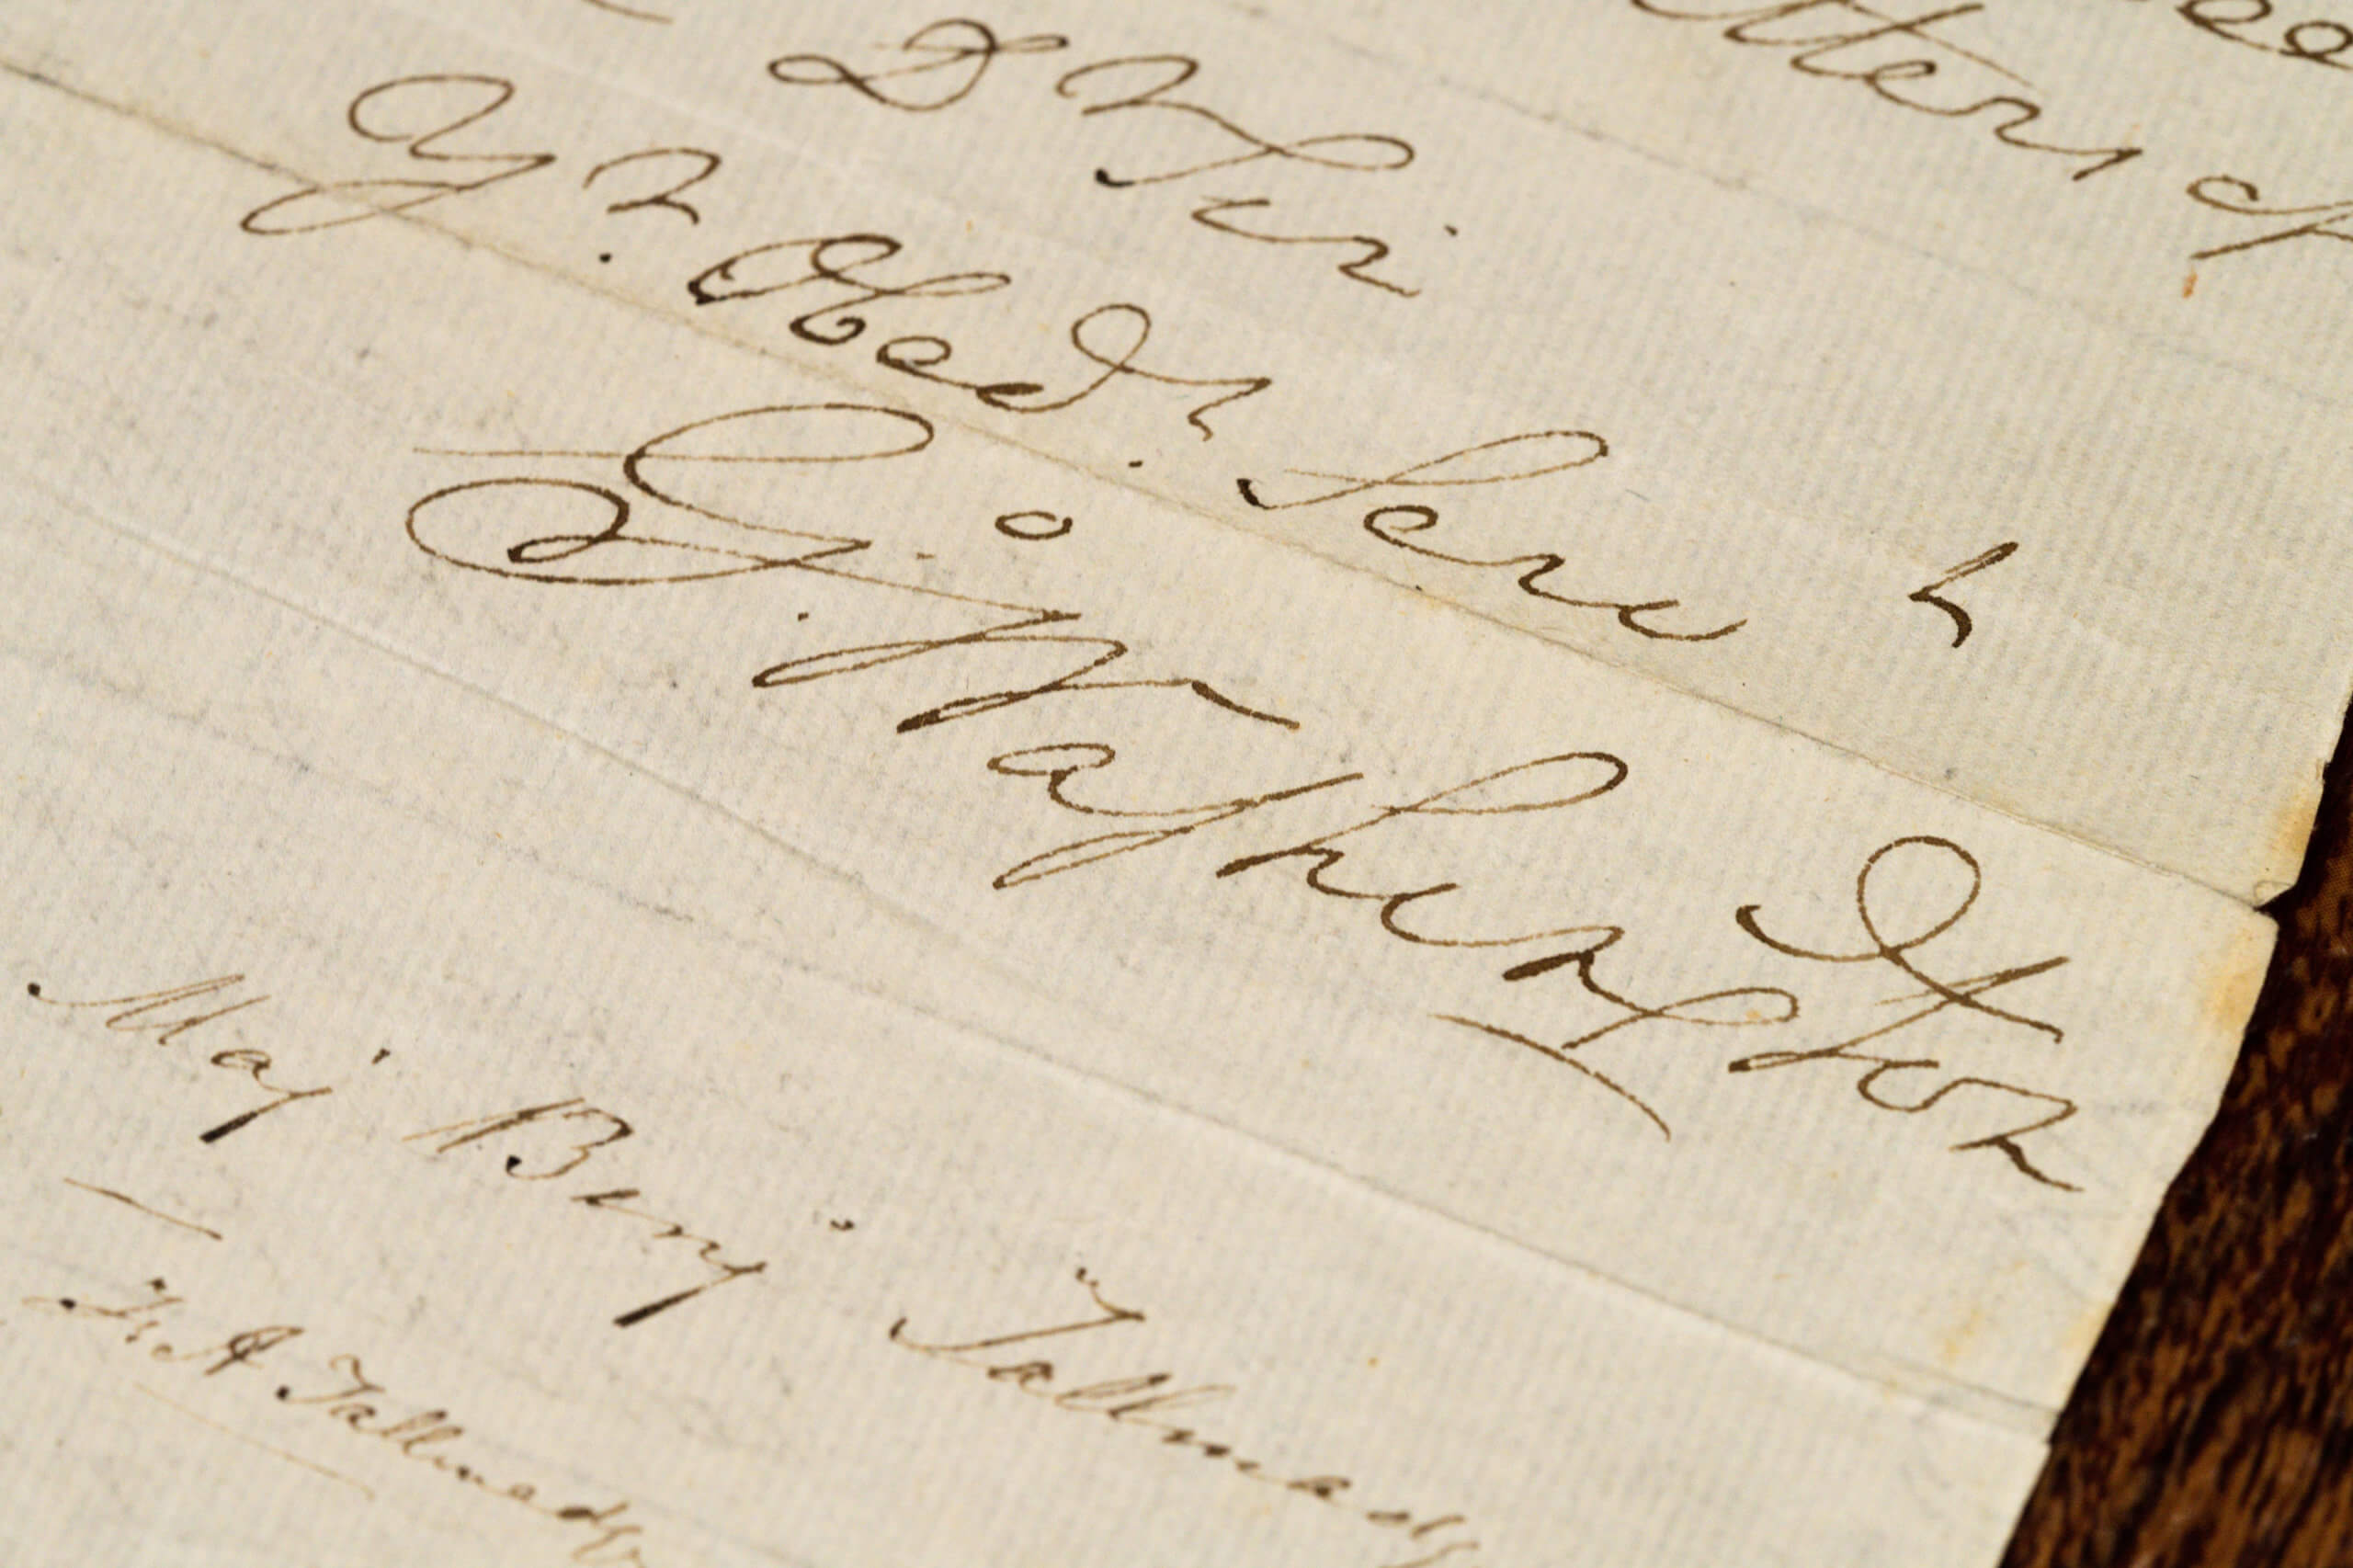 tters of
D Sir
Yr. Obedt. Serv t
Go. Washington
Maj Benj Tallmadg
Fr A Tallmadg